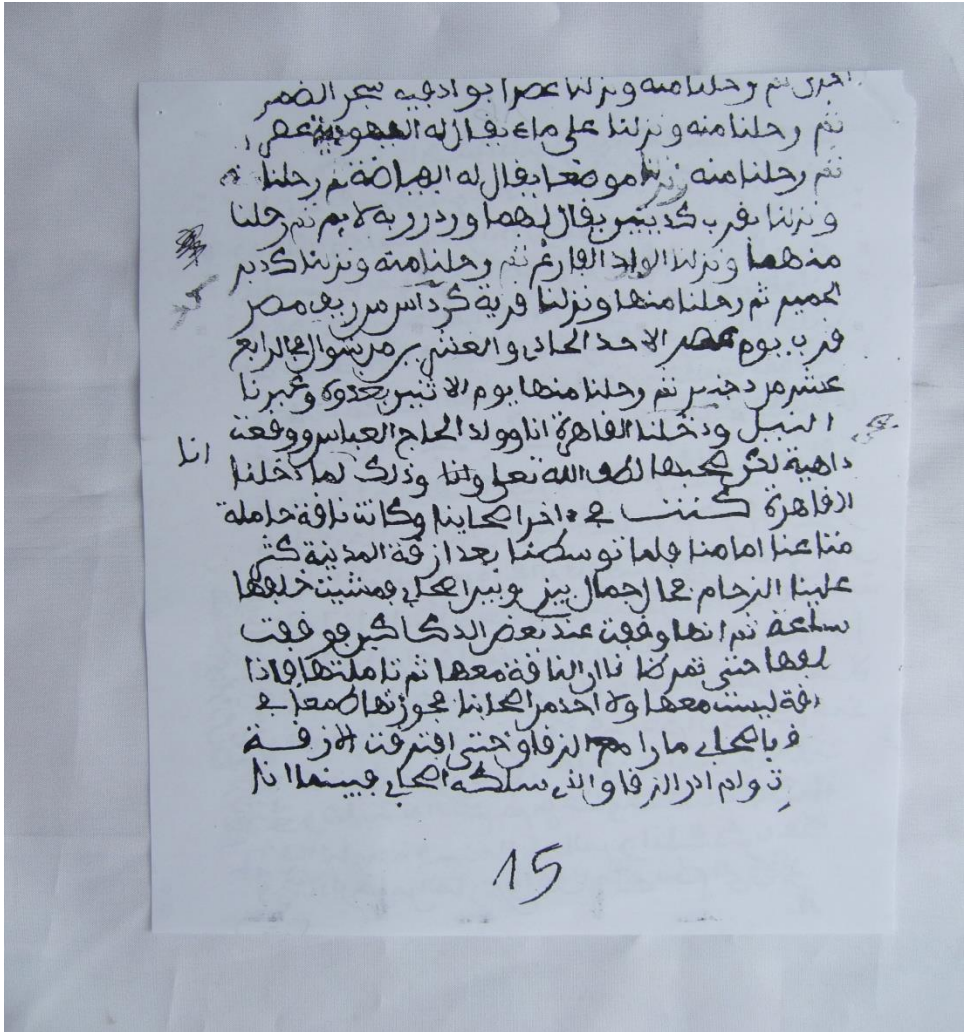 اخرى ثم رحلنا منه ونزلنا عصرا بواد فيه شجر الضمر
ثم رحلنا منه ونزلنا على ماء يقال له
ثم رحلنا منه موضعا يقال له ثم رحلنا
ونزلنا بقرب كديتين يقال لهما ثم رحلنا
منهما ونزلنا الواد الفارغ ثم رحلنا منه ونزلنا كدير
الحمير ثم رحلنا منها ونزلنا قرية كرداس من ريف مصر
قرب يوم الاحد الحادي والعشرين من شوال الرابع
عشر من دجنبر ثم رحلنا منها يوم الاثنين بغدوة وعبرنا
النيل ودخلنا القاهرة انا وولد الحاج العباس ووقعت
انا
داهية لكن صحبها لطف الله تعلى وذلك لما دخلنا
القاهرة كنت في اخر اصحابنا وكانت ناقة حاملة
متاعنا امامنا فلما توسطنا بعد ازقة المدينة كثر
علينا الزحام فحال جمال بيني وبين اصحابي فمشيت خلفها
ساعة ثم انها وقفت عند بعض الدكاكين فوقفت
ان الناقة معها ثم تاملتها فاذا
ليست معها ولا احد من اصحابنا
باصحابي مارا مع الزقاق حتى افترقت الازقة
ولم ادر الزقاق الذي سلكه اصحابي فبينما انا
15